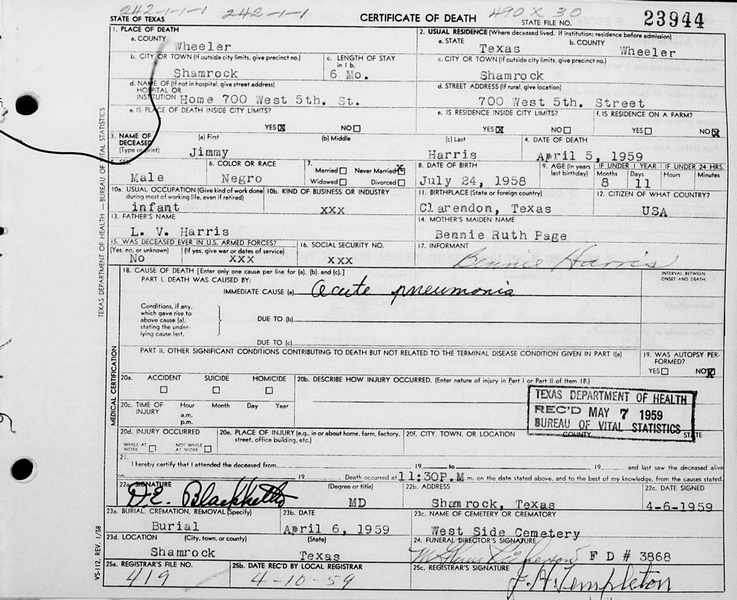 242-1-1-1 242-1-1 CERTIFICATE OF DEATH 490 X 30
STATE OF TEXAS STATE FILE NO. 23944
1. PLACE OF DEATH 2. USUAL RESIDENCE (Where deceased lived. If institution: residence before admission)
a. COUNTY a. STATE b. COUNTY
Wheeler Texas Wheeler
b. CITY OR TOWN (If outside city limits, give precinct no.) c. LENGTH OF STAY in 1 b. c. CITY OR TOWN (If outside city limits, give precinct no.)
Shamrock 6 Mo. Shamrock
d. NAME OF (If not in hospital, give street address) HOSPITAL OR INSTITUTION d. STREET ADDRESS (If rural, give location)
Home 700 West 5th. St. 700 West 5th. Street
e. IS PLACE OF DEATH INSIDE CITY LIMITS? e. IS RESIDENCE INSIDE CITY LIMITS? f. IS RESIDENCE ON A FARM?
YES X NO YES X NO YES NO X
3. NAME OF DECEASED (Type or print) (a) First (b) Middle (c) Last 4. DATE OF DEATH
Jimmy Harris April 5, 1959
5. SEX 6. COLOR OR RACE 7. Married Never Married X Widowed Divorced 8. DATE OF BIRTH 9. AGE (In years last birthday) IF UNDER 1 YEAR IF UNDER 24 HRS.
Months Days Hours Minutes
Male Negro July 24, 1958 8 11
10a. USUAL OCCUPATION (Give kind of work done during most of working life, even if retired) 10b. KIND OF BUSINESS OR INDUSTRY 11. BIRTHPLACE (State or foreign country) 12. CITIZEN OF WHAT COUNTRY?
infant xxx Clarendon, Texas USA
13. FATHER'S NAME 14. MOTHER'S MAIDEN NAME
L. V. Harris Bennie Ruth Page
15. WAS DECEASED EVER IN U.S. ARMED FORCES? 16. SOCIAL SECURITY NO. 17. INFORMANT
(Yes, no, or unknown) (If yes, give war or dates of service)
No xxx xxx Bennie Harris
18. CAUSE OF DEATH [Enter only one cause per line for (a), (b), and (c).] INTERVAL BETWEEN ONSET AND DEATH
PART I. DEATH WAS CAUSED BY:
IMMEDIATE CAUSE (a) acute pneumonia
Conditions, if any, which gave rise to above cause (a), stating the underlying cause last.
DUE TO (b)
DUE TO (c)
PART II. OTHER SIGNIFICANT CONDITIONS CONTRIBUTING TO DEATH BUT NOT RELATED TO THE TERMINAL DISEASE CONDITION GIVEN IN PART I(a) 19. WAS AUTOPSY PERFORMED?
YES NO X
20a. ACCIDENT SUICIDE HOMICIDE 20b. DESCRIBE HOW INJURY OCCURRED. (Enter nature of injury in Part I or Part II of Item 18.)
20c. TIME OF INJURY Hour a.m. p.m. Month Day Year
TEXAS DEPARTMENT OF HEALTH
REC'D MAY 7 1959
BUREAU OF VITAL STATISTICS
20d. INJURY OCCURRED WHILE AT WORK NOT WHILE AT WORK 20e. PLACE OF INJURY (e.g., in or about home, farm, factory, street, office building, etc.) 20f. CITY, TOWN, OR LOCATION COUNTY
21. I hereby certify that I attended the deceased from 19 to 19 and last saw the deceased alive
19 Death occurred at 11:30P.M m. on the date stated above, and to the best of my knowledge, from the causes stated.
22a. SIGNATURE (Degree or title) 22b. ADDRESS 22c. DATE SIGNED
MD Shamrock, Texas 4-6-1959
23a. BURIAL, CREMATION, REMOVAL (Specify) 23b. DATE 23c. NAME OF CEMETERY OR CREMATORY
Burial April 6, 1959 West Side Cemetery
23d. LOCATION (City, town, or county) (State) 24. FUNERAL DIRECTOR'S SIGNATURE
Shamrock Texas F D # 3868
25a. REGISTRAR'S FILE NO. 25b. DATE REC'D BY LOCAL REGISTRAR 25c. REGISTRAR'S SIGNATURE
419 4-10-59 J. A. Templeton
TEXAS DEPARTMENT OF HEALTH — BUREAU OF VITAL STATISTICS
MEDICAL CERTIFICATION
VS-112, REV. 1/58